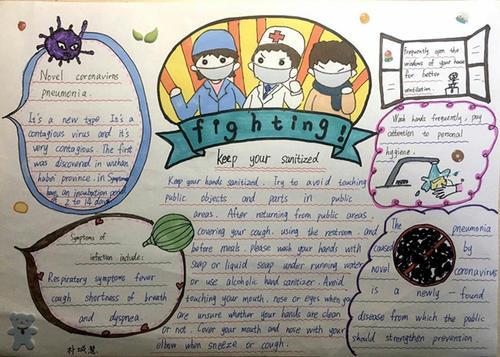 Novel coronavirns
pneumonia.
It's a new type. It's a
contagious virus and it's
very contagious. The first
was discovered in wuhan,
hubei province. in
have an incubation period
of 2 to 14 days
Symptoms of
infection include:
Respiratory symptoms fever
cough shortness of breath
and dyspnea.
fighting!
keep your sanitized
Keep your hands sanitized. Try to avoid touching
public objects and parts in public
areas. After returning from public areas.
covering your cough. using the restroom and
before meals. Please wash your hands with
soap or liquid soap under running water
or use alcoholic hand sanitizer. Avoid
touching your mouth, nose or eyes when you
are unsure whether your hands are clean
or not. Cover your mouth and nose with your
elbow when sneeze or cough.
Frequently open the
windows of your house
for better
ventilation.
Wash hands frequently, pay
attention to personal
hygiene.
The pneumonia
caused by
novel coronavirus
is a newly found
disease from which the public
should strengthen prevention